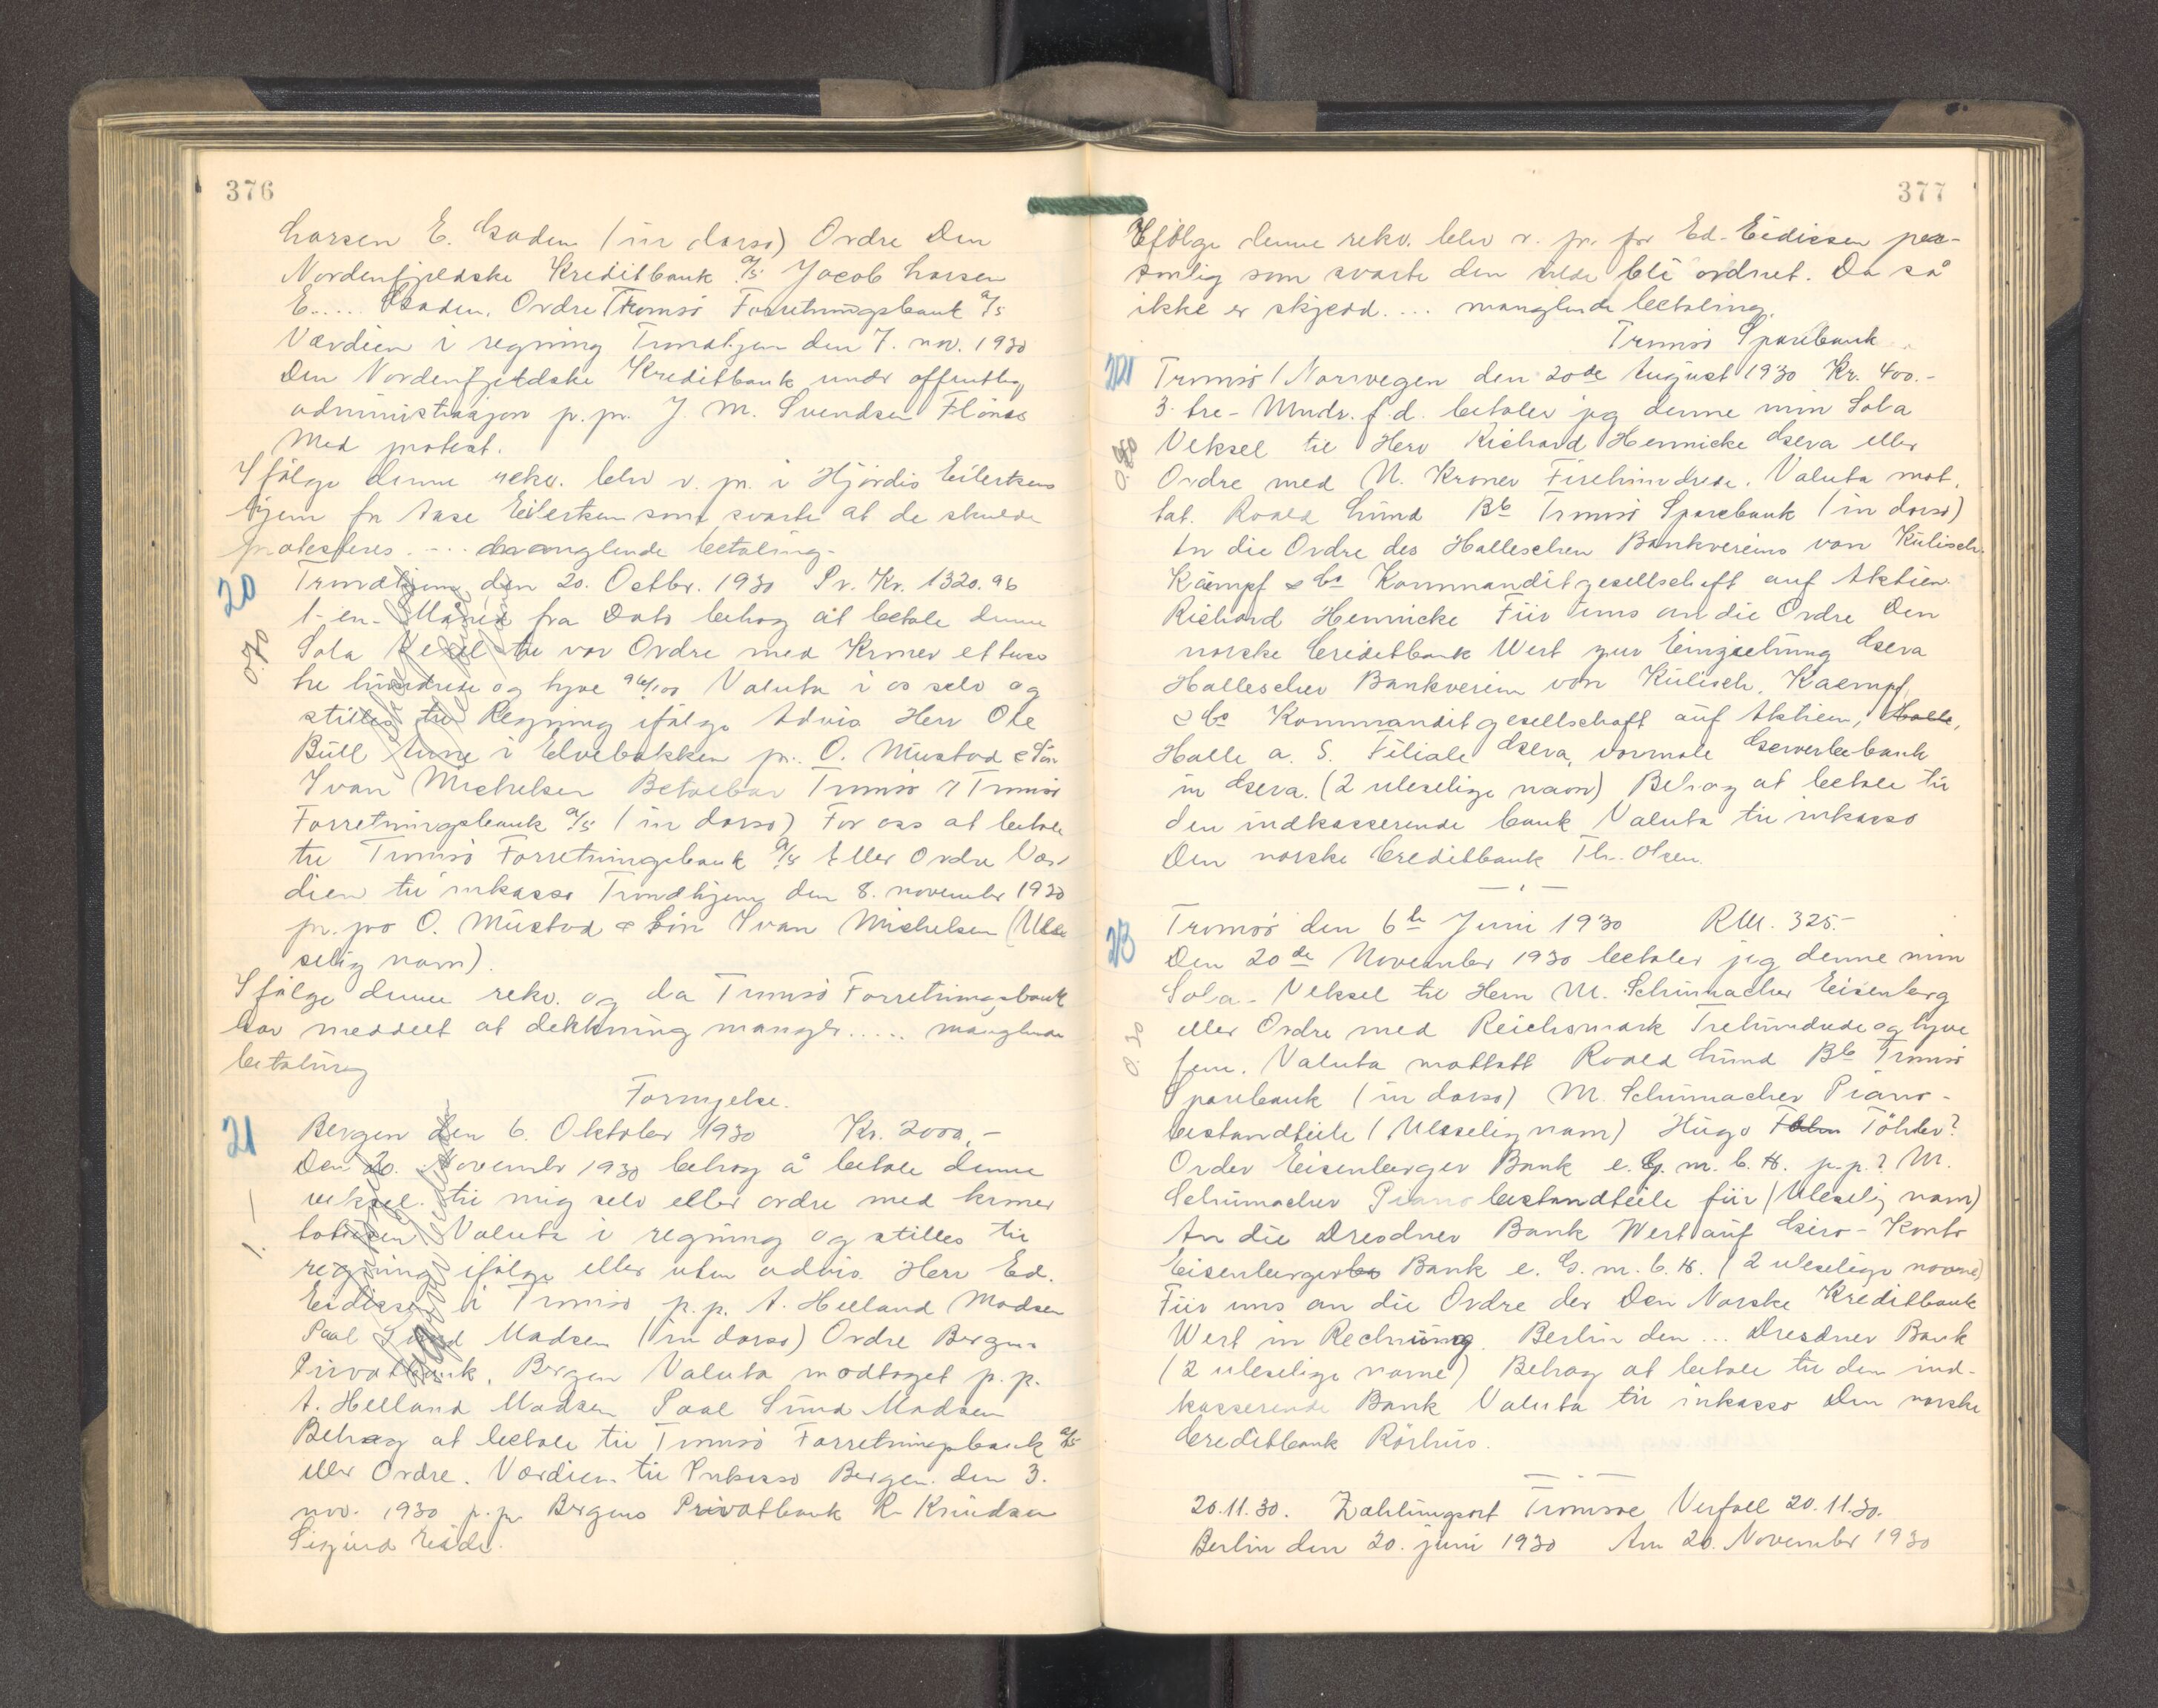 376
Larsen E. Gaden (in dorso) Ordre Den
Nordenfjeldske Kreditbank A/S Jacob Larsen
E..... Gaden. Ordre Tromsö Forretningsbank A/S
Værdien i regning Trondhjem den 7. nov. 1930
Den Nordenfjeldske Kreditbank under offentlig
administrasjon p. pr. J. M. Svendsen Flönes
Med protest.
Ifölge denne rekv. blev v. pr. i Hjördis Eilertsens
hjem fr Aase Eilertsen som svarte at de skulde
protesteres. ... manglende betaling.
20 Trondhjem den 20. Octbr. 1930 Pr. Kr. 1320.96
1-en- Måned fra Dato behag at betale denne
0.70 Sola Vexel til vor Ordre med Kroner ettusen
tre hundrede og tyve 96/100 Valuta i os selv og
stilles til Regning ifölge Advis Herr Ole
Bull Aune i Elvebakken pr. O. Mustad & Sön
Ivan Michelsen Betalbar Tromsö i Tromsö
Forretningsbank A/S (in dorso) For oss at betale
til Tromsö Forretningsbank A/S Eller Ordre Vær
dien til inkasso Trondhjem den 8. november 1930
pr. pro O. Mustad & Sön Ivan Michelsen (Ule
selig navn).
Ifölge denne rekv. og da Tromsö Forretningsbank
har meddelt at dekkning mangler..... manglende
betaling
Fornyelse.
21 Bergen den 6. Oktober 1930 Kr. 2000,-
Den 20. November 1930 behag å betale denne
veksel til mig selv eller ordre med kroner
1.- totusen Valuta i regning og stilles til
regning ifölge eller uten advis. Herr Ed.
Eidissen i Tromsö p.p. A. Helland Madsen
Paal Sund Madsen (in dorso) Ordre Bergens
Privatbank, Bergen Valuta modtaget p.p.
A. Helland Madsen Paal Sund Madsen
Behag at betale til Tromsö Forretningsbank A/S
eller Ordre. Værdien til Inkasso Bergen den 3.
nov. 1930 p.p. Bergens Privatbank R. Knudsen
Sigurd Eide.
377
Ifölge denne rekv. blev v. pr. for Ed. Eidissen per-
sonlig som svarte den vilde bli ordnet. Da så
ikke er skjedd.... manglende betaling.
Tromsö Sparebank
22 Tromsö / Norwegen den 20de August 1930 Kr. 400.-
3- tre- Mndr. f.d. betaler jeg denne min Sola
0.80 Veksel til Herr Richard Hennicke Gera eller
Ordre med N. Kroner Firehundrede. Valuta mot.
tat. Roald Lund Bb Tromsö Sparebank (in dorso)
An die Ordre des Halleschen Bankvereins von Kulisch
Kaempf & Co Kommanditgesellschaft auf Aktien
Richard Hennicke Für uns an die Ordre Den
norske Creditbank Wert zur Einziehung Gera
Hallescher Bankverein von Kulisch, Kaempf,
& Co Kommanditgesellschaft auf Aktien, Halle,
Halle a. S. Filiale Gera, vormals Gewerbebank
in Gera. (2 uleselige navn) Behag at betale til
den indkasserende bank Valuta til inkasso
Den norske Creditbank Th. Olsen.
23 Tromsö den 6te Juni 1930 RM. 325.-
Den 20de November 1930 betaler jeg denne min
Sola- Veksel til Herrn M. Schumacher Eisenberg
0.70 eller Ordre med Reichsmark Trehundrede og tyve
fem. Valuta mottatt Roald Lund Bb Tromsö
Sparebank (in dorso) M. Schumacher Piano-
bestandteile (Uleselig navn) Hugo Töhler?
Order Eisenberger Bank e. G. m. b. H. p.p.? M.
Schumacher Pianobestandteile für (Uleselig navn)
An die Dresdner Bank Wert auf Giro-Konto
Eisenberger Bank e. G. m. b. H. (2 uleselige navne)
Für uns an die Ordre der Den Norske Kreditbank
Wert in Rechnung. Berlin den ... Dresdner Bank
(2 uleselige navne) Behag at betale til den ind-
kasserende Bank Valuta til inkasso Den norske
Creditbank Rörhus.
20.11.30. Zahlungsort Tromsoe Verfall 20.11.30.
Berlin den 20. juni 1930 Am 20. November 1930